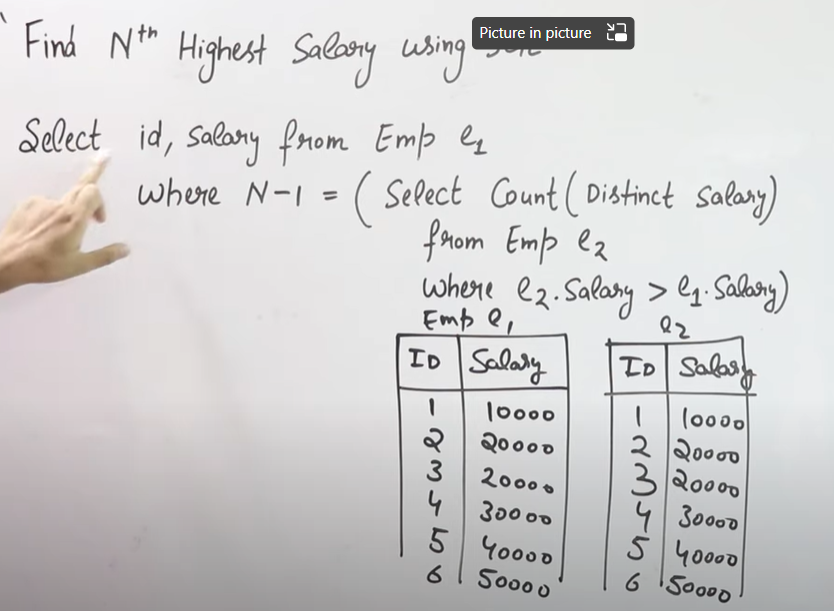 Find Nth Highest Salary using
Picture in picture
Select id, Salary from Emp e1
where N-1 = ( Select Count ( Distinct Salary)
from Emp e2
where e2.Salary > e1.Salary)
Emp e1
ID Salary
1 10000
2 20000
3 20000
4 30000
5 40000
6 50000
e2
ID Salary
1 10000
2 20000
3 20000
4 30000
5 40000
6 50000